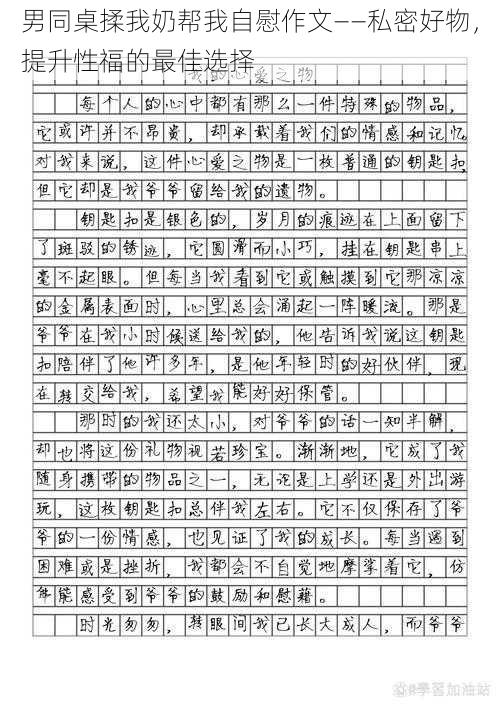 男同桌揉我奶帮我自慰作文——私密好物，
提升性福的最佳选择
我的心爱之物
每个人的心中都有那么一件特殊的物品，
它或许并不昂贵，却承载着我们的情感和记忆
对我来说，这件心爱之物是一枚普通的钥匙扣，
但它却是我爷爷留给我的遗物。
钥匙扣是银色的，岁月的痕迹在上面留下
了斑驳的锈迹，它圆滑而小巧，挂在钥匙串上
毫不起眼。但每当我看到它或触摸到它那凉凉
的金属表面时，心里总会涌起一阵暖流。那是
爷爷在我小时候送给我的，他告诉我说这钥匙
扣陪伴了他许多年，是他年轻时的好伙伴，现
在转交给我，希望我能好好保管。
那时的我还太小，对爷爷的话一知半解，
却也将这份礼物视若珍宝。渐渐地，它成了我
随身携带的物品之一，无论是上学还是外出游
玩，这枚钥匙扣总伴我左右。它不仅保存了爷
爷的一份情感，也见证了我的成长。每当遇到
困难或是挫折，我都会不自觉地摩挲着它，仿
佛能感受到爷爷的鼓励和慰藉。
时光匆匆，转眼间我已长大成人，而爷爷
学習加油站